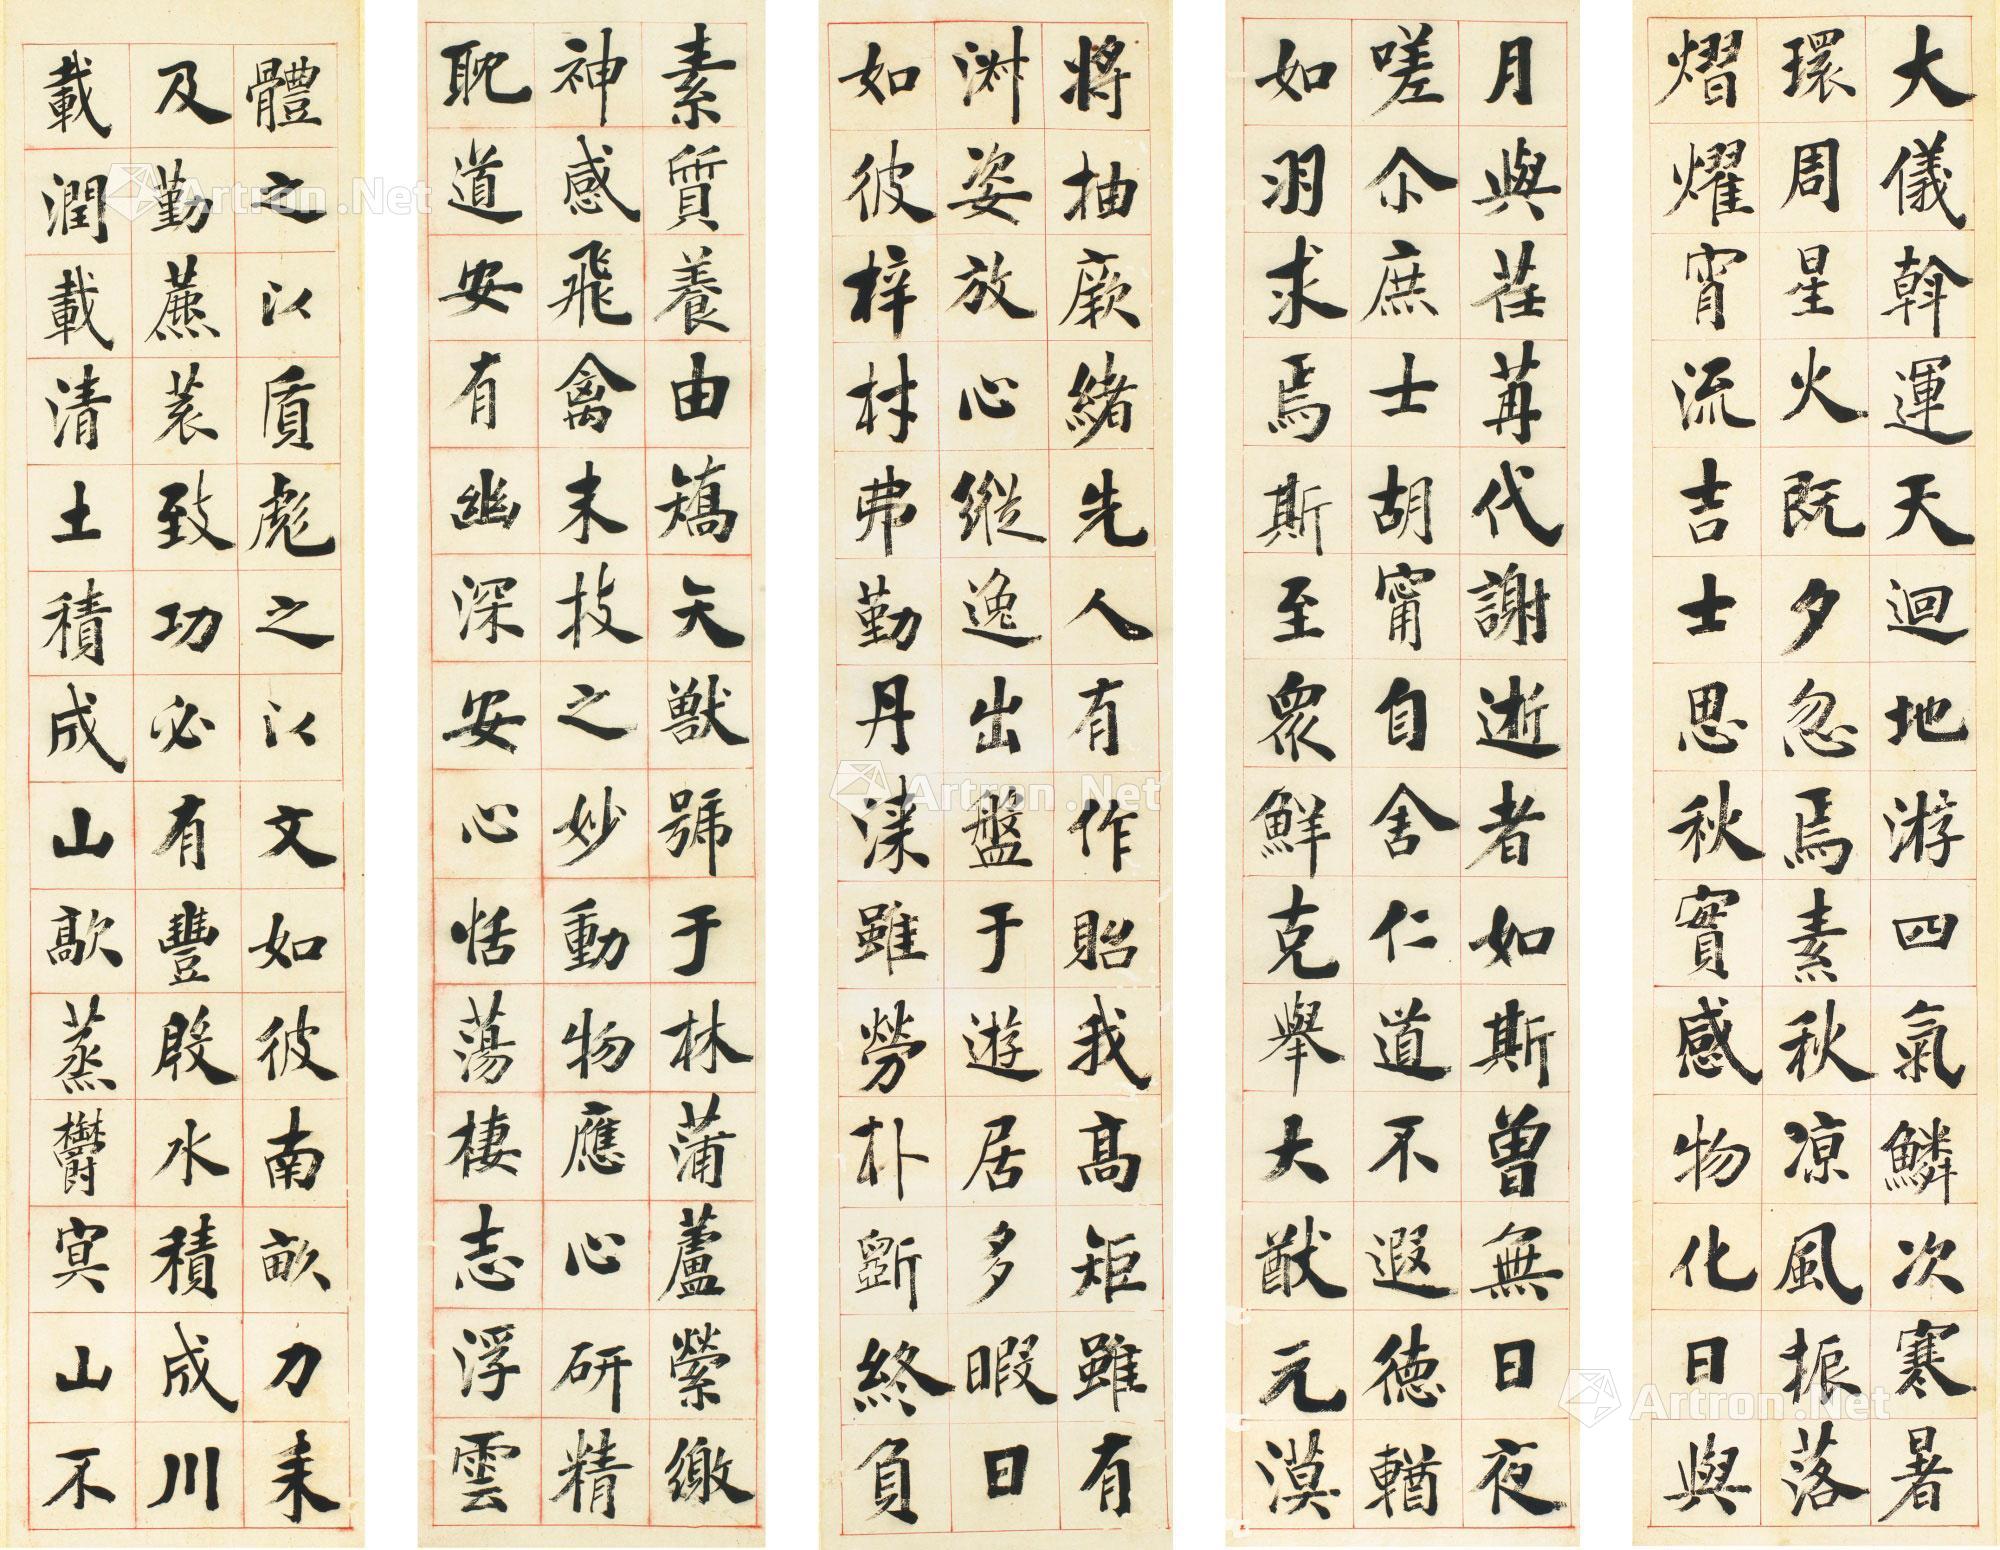 大儀斡運天迴地游四氣鱗次寒暑
環周星火既夕忽焉素秋凉風振落
熠燿宵流吉士思秋實感物化日與
月與荏苒代謝逝者如斯曾無日夜
嗟尒庶士胡甯自舍仁道不遐德輶
如羽求焉斯至眾鮮克舉大猷元漠
將抽厥緒先人有作貽我高矩雖有
淑姿放心縱逸出盤于遊居多暇日
如彼梓材弗勤丹漆雖勞朴斲終負
素質養由矯矢獸號于林蒲蘆縈繳
神感飛禽末技之妙動物應心研精
耽道安有幽深安心恬蕩棲志浮雲
體之以質彪之以文如彼南畝力耒
及勤藨蓘致功必有豐殷水積成川
載潤載清土積成山歊蒸鬱冥山不
Artron.Net
Artron.Net
Artron.Net